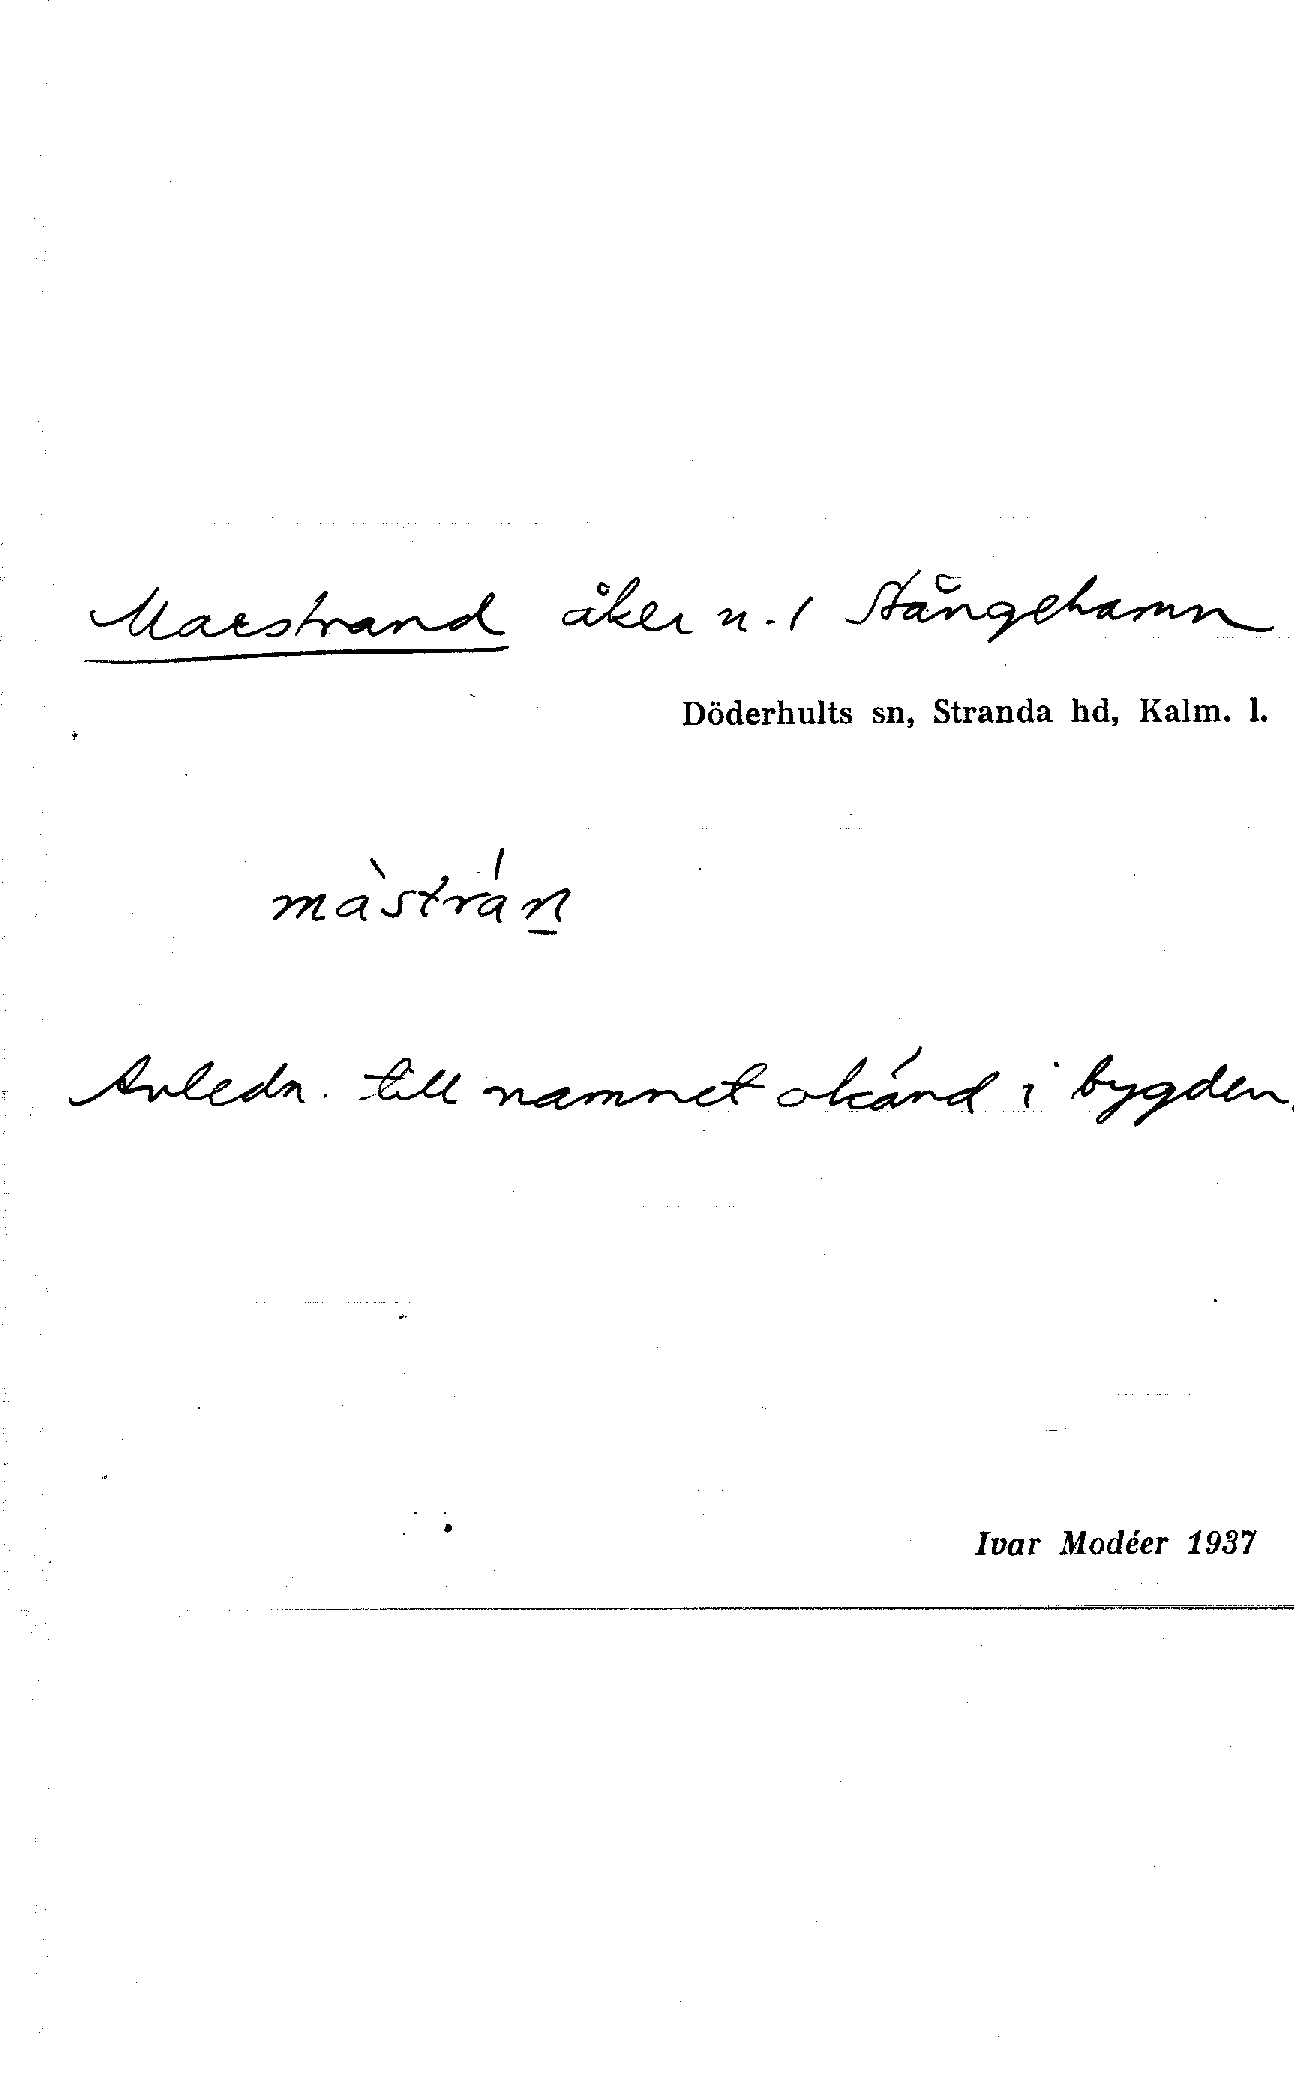 Marstrand åker n. 1 Stångehamn
Döderhults sn, Stranda hd, Kalm. l.
ma`stra´n
Anledn. till namnet okänd i bygden.
Ivar Modéer 1937